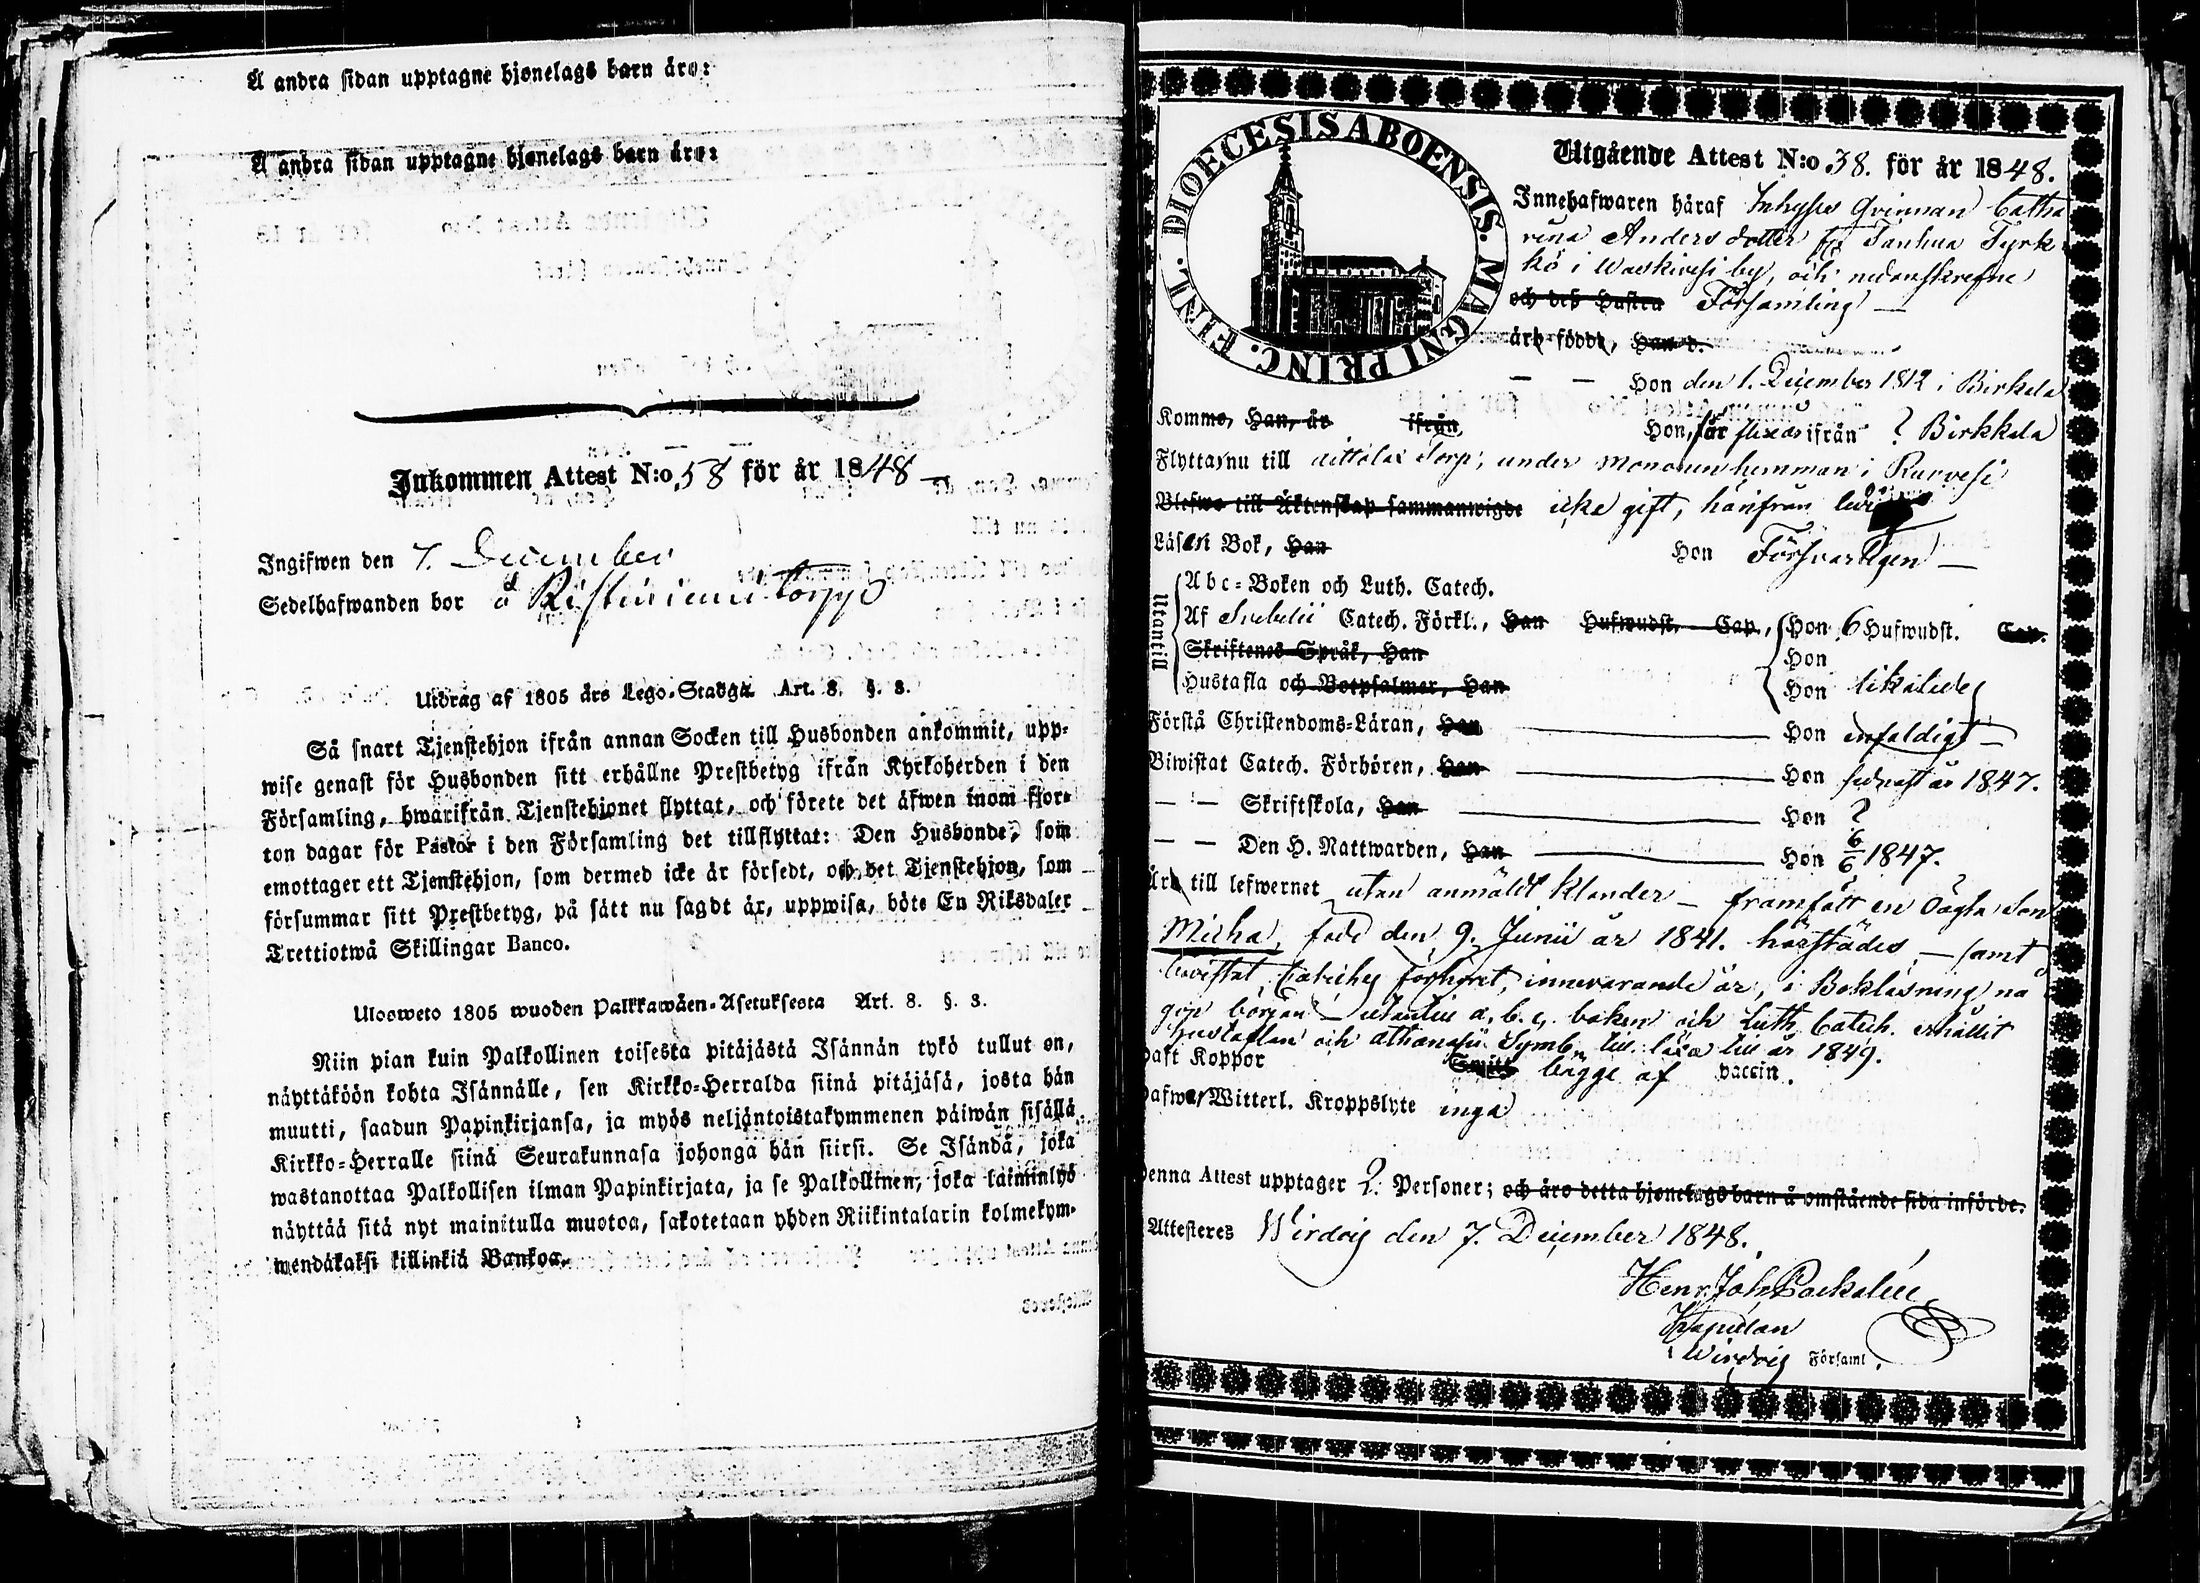 A andra sidan upptagne hjonelags barn äro:
A andra sidan upptagne hjonelags barn äro:
Inkommen Attest N:o 58 för år 1848
Ingifwen den 7. December
Sedelhafwanden bor å Ristiniemi torp
Utdrag af 1805 års Lego-Stadga Art. 8. §. 3.
Så snart Tjenstehjon ifrån annan Socken till Husbonden ankommit, upp-
wise genast för Husbonden sitt erhållne Prestbetyg ifrån Kyrkoherden i den
Församling, hwarifrån Tjenstehjonet flyttat, och förete det äfwen inom fjor-
ton dagar för Pastor i den Församling det tillflyttat: Den Husbonde, som
emottager ett Tjenstehjon, som dermed icke är försedt, och det Tjenstehjon, som
försummar sitt Prestbetyg, på sätt nu sagdt är, uppwisa, böte En Riksdaler
Trettiotwå Skillingar Banco.
Ulosweto 1805 wuoden Palkkawäen-Asetuksesta Art. 8. §. 3.
Niin pian kuin Palkollinen toisesta pitäjästä Isännän tykö tullut on,
näyttäköön kohta Isännälle, sen Kirkko-Herralda siinä pitäjäsä, josta hän
muutti, saadun Papinkirjansa, ja myös neljäntoistakymmenen päiwän sisällä
Kirkko-Herralle siinä Seurakunnasa johonga hän siirsi. Se Isändä, joka
wastanottaa Palkollisen ilman Papinkirjata, ja se Palkollinen, joka laiminlyö
näyttää sitä nyt mainitulla muotoa, sakotetaan yhden Riikintalarin kolmekym-
mendäkaksi killinkiä Bankoa.
DIOECESIS ABOENSIS. MAGNI PRINC. FINL.
Utgående Attest N:o 38. för år 1848.
Innehafwaren häraf Inhyses Qvinnan Catha
rina Anders dotter fr. Tanhua Tyrk
kö i Waskivesi by, och nedanskrefne
och dess Hustru Församling
äro födde, Han d.
Hon den 1. December 1812 i Birkala
Komme, Han, år ifrån Hon, för flera år ifrån ? Birkkala
Flyttar nu till Aittolax Torp, under Mononen hemman i Rurvesi
Blefwo till Äktenskap sammanwigde icke gift, härifrån
Läser i Bok, Han Hon Försvarligen
Utantill
Abc-Boken och Luth. Catech.
Af Svebelii Catech. Förkl., Han Hufwudst. Cap., Hon 6 Hufwudst. Cap.
Skriftenes Språk, Han Hon
Hustafla och Botpsalmer, Han Hon likaledes
Förstå Christendoms-Läran, Han Hon enfaldigt
Biwistat Catech. Förhören, Han Hon sednast år 1847.
— — Skriftskola, Han Hon ?
— — Den H. Nattwarden, Han Hon 6/6 1847.
Är till lefwernet utan anmäldt klander — framfödt en oägta Son
Micha, född den 9. Junii år 1841. härstädes, — samt
bevistat, Catechez förhöret, innevarande år, i Bokläsning nå
gon början — utantill a. b. c. boken och Luth. Catech. erhållit
Hustaflan och Athanasii Symb. till läxa till år 1849.
Haft Koppor Smitt begge af vaccin.
Hafwa Witterl. Kroppslyte inga
Denna Attest upptager 2. Personer; och äro detta hjonelags barn å omstående sida införde.
Attesteres Wirdois den 7. December 1848.
Henr. Joh.
Kapellan
i Wirdois Församl.